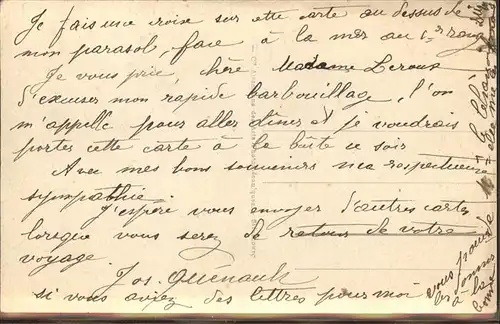 Je fais une croix sur cette carte au dessus de
mon parasol, face à la mer au 1er rang
Je vous prie, chère Madame Leroux
d'excuser mon rapide barbouillage, l'on
m'appelle pour aller dîner et je voudrais
porter cette carte à la boîte ce soir
Avec mes bons souvenirs ma respectueuse
sympathie.
J'espère vous envoyer d'autres cartes
lorsque vous serez de retour de votre
voyage.
Jos. Quenault
si vous aviez des lettres pour moi
vous pouvez
les donner
à la